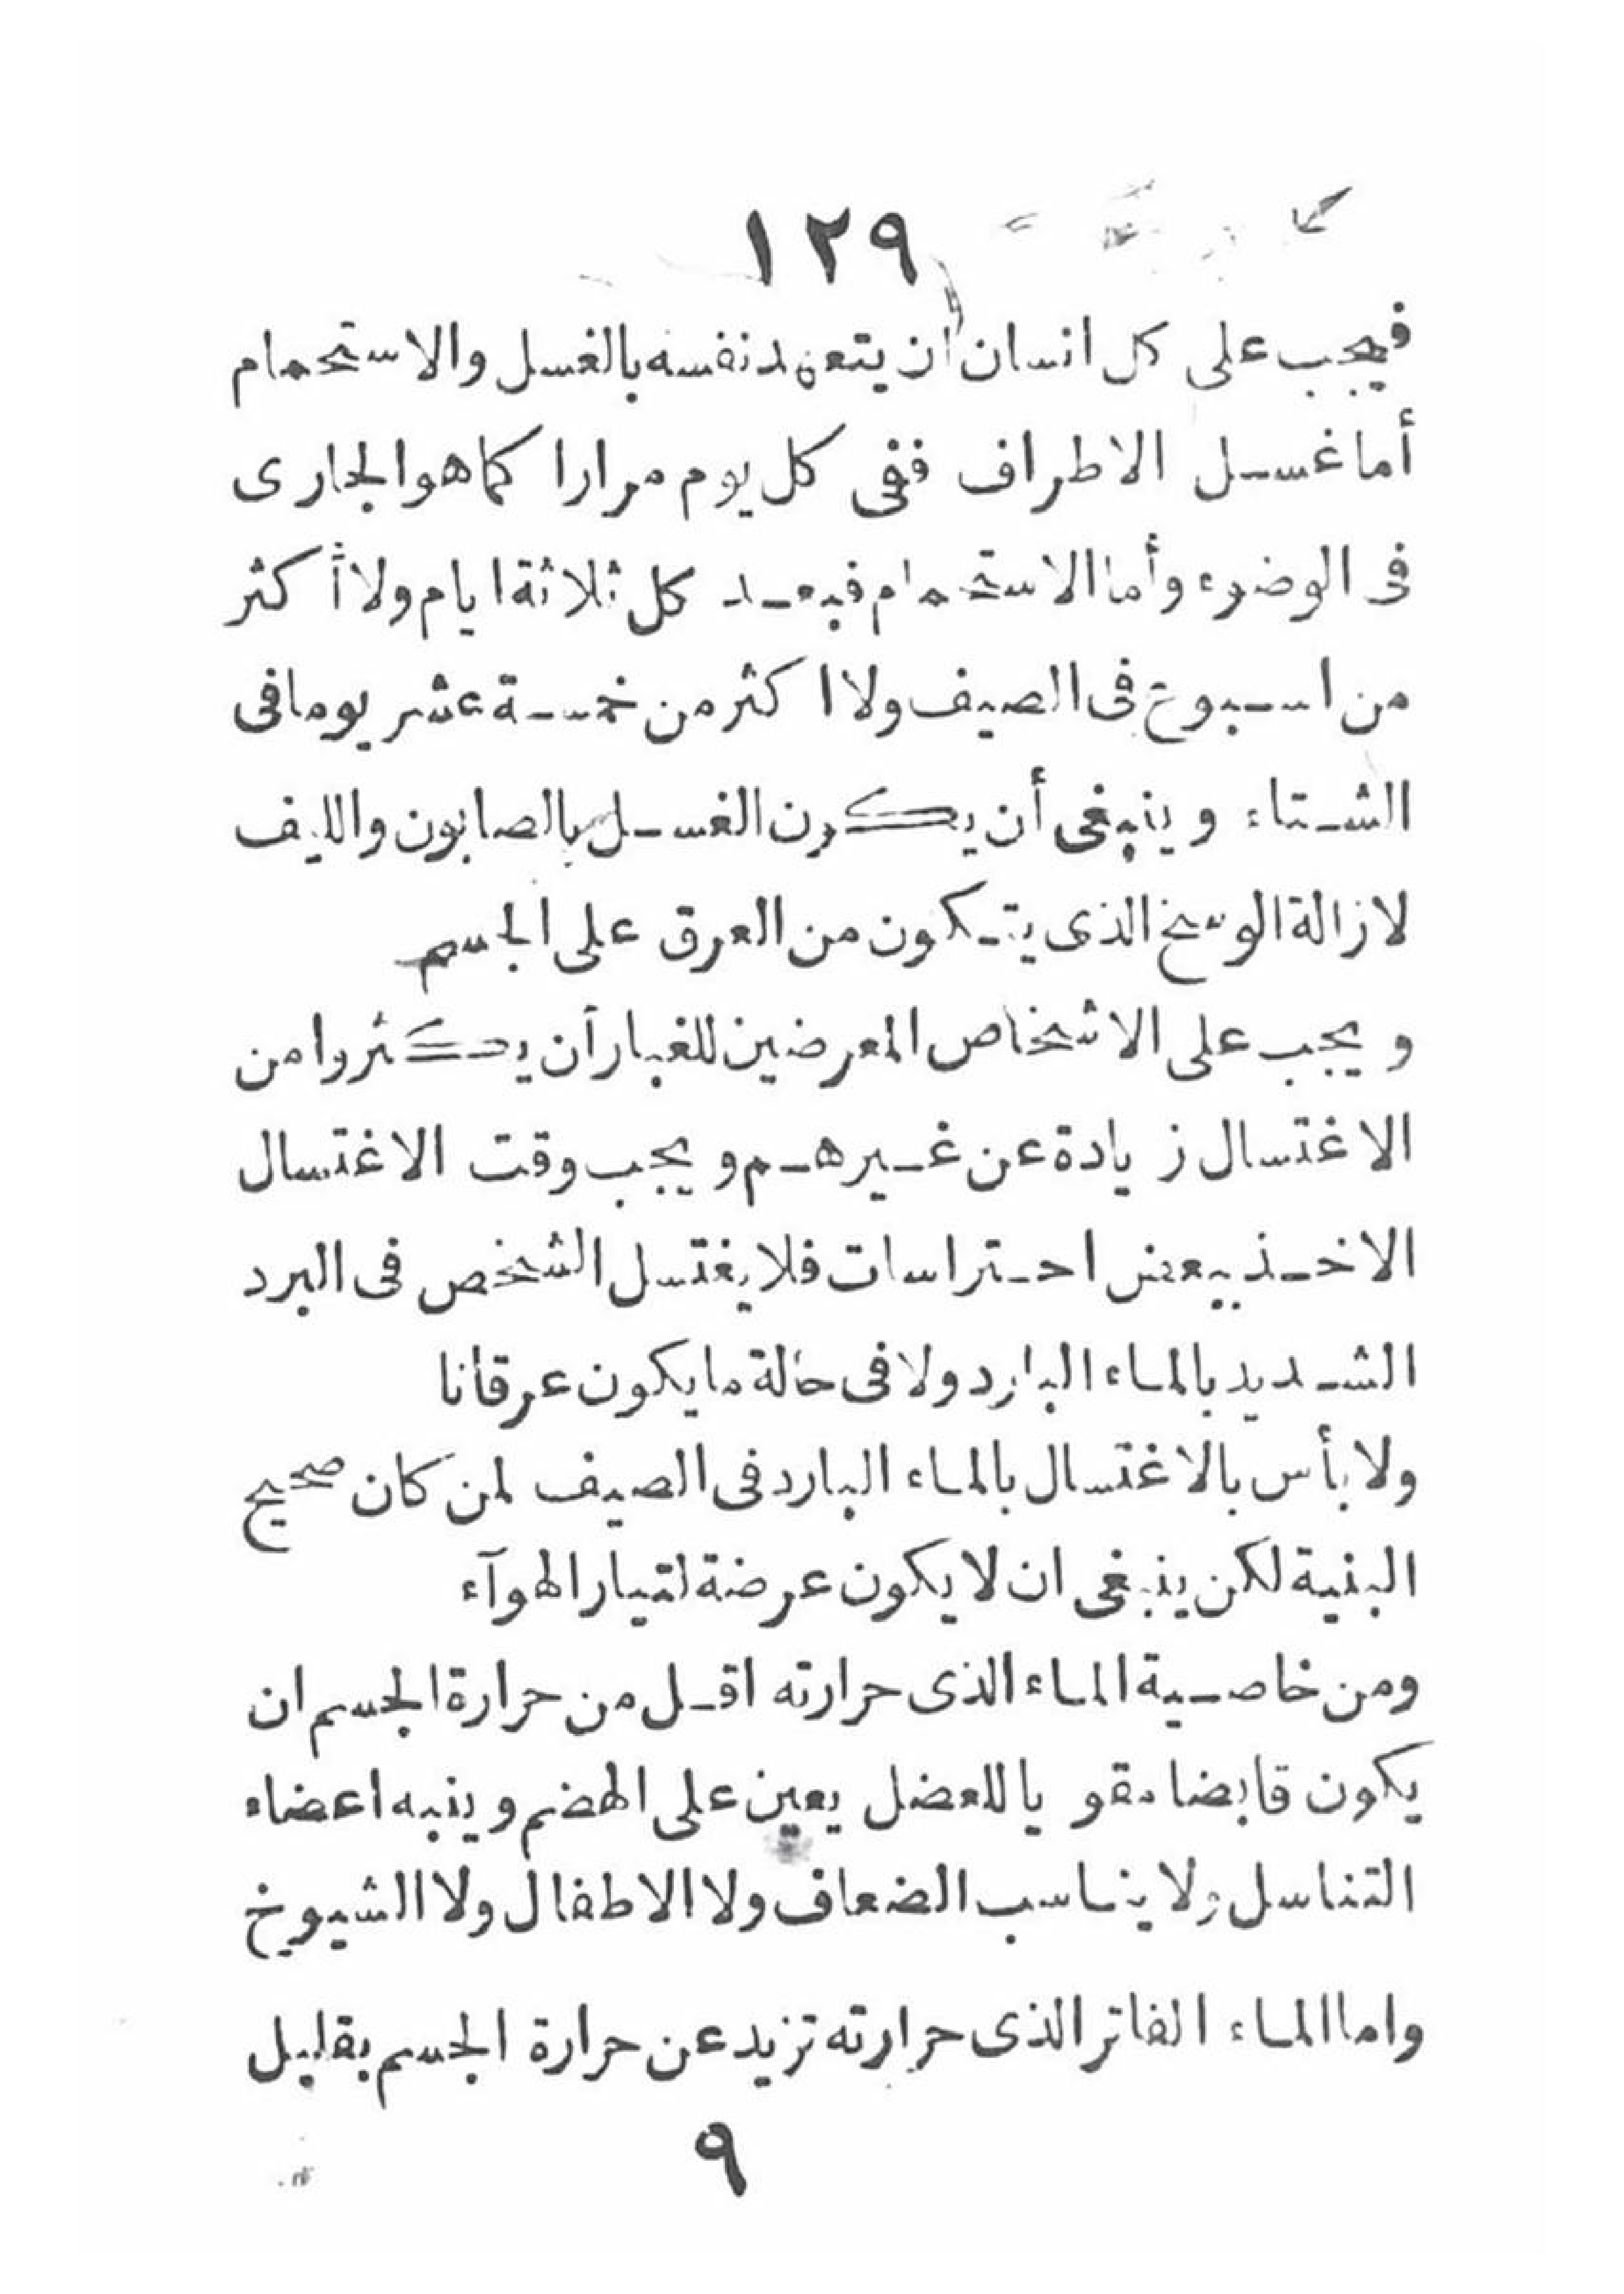 ١٢٩
فيجب على كل انسان ان يتعهد نفسه بالغسل والاستحمام
أما غسل الاطراف ففى كل يوم مرارا كما هو الجارى
فى الوضوء وأما الاستحمام فبعد كل ثلاثة ايام ولا أكثر
من اسبوع فى الصيف ولا اكثر من خمسة عشر يوما فى
الشتاء وينبغى أن يكون الغسل بالصابون والليف
لازالة الوسخ الذى يتكون من العرق على الجسم
ويجب على الاشخاص المعرضين للغبار أن يكثروا من
الاغتسال زيادة عن غيرهم ويجب وقت الاغتسال
الاخذ ببعض احتراسات فلا يغتسل الشخص فى البرد
الشديد بالماء البارد ولا فى حالة ما يكون عرقانا
ولا بأس بالاغتسال بالماء البارد فى الصيف لمن كان صحيح
البنية لكن ينبغى ان لا يكون عرضة لتيار الهوآء
ومن خاصية الماء الذى حرارته اقل من حرارة الجسم ان
يكون قابضا مقويا للعضل يعين على الهضم وينبه اعضاء
التناسل ولا يناسب الضعاف ولا الاطفال ولا الشيوخ
واما الماء الفاتر الذى حرارته تزيد عن حرارة الجسم بقليل
٩